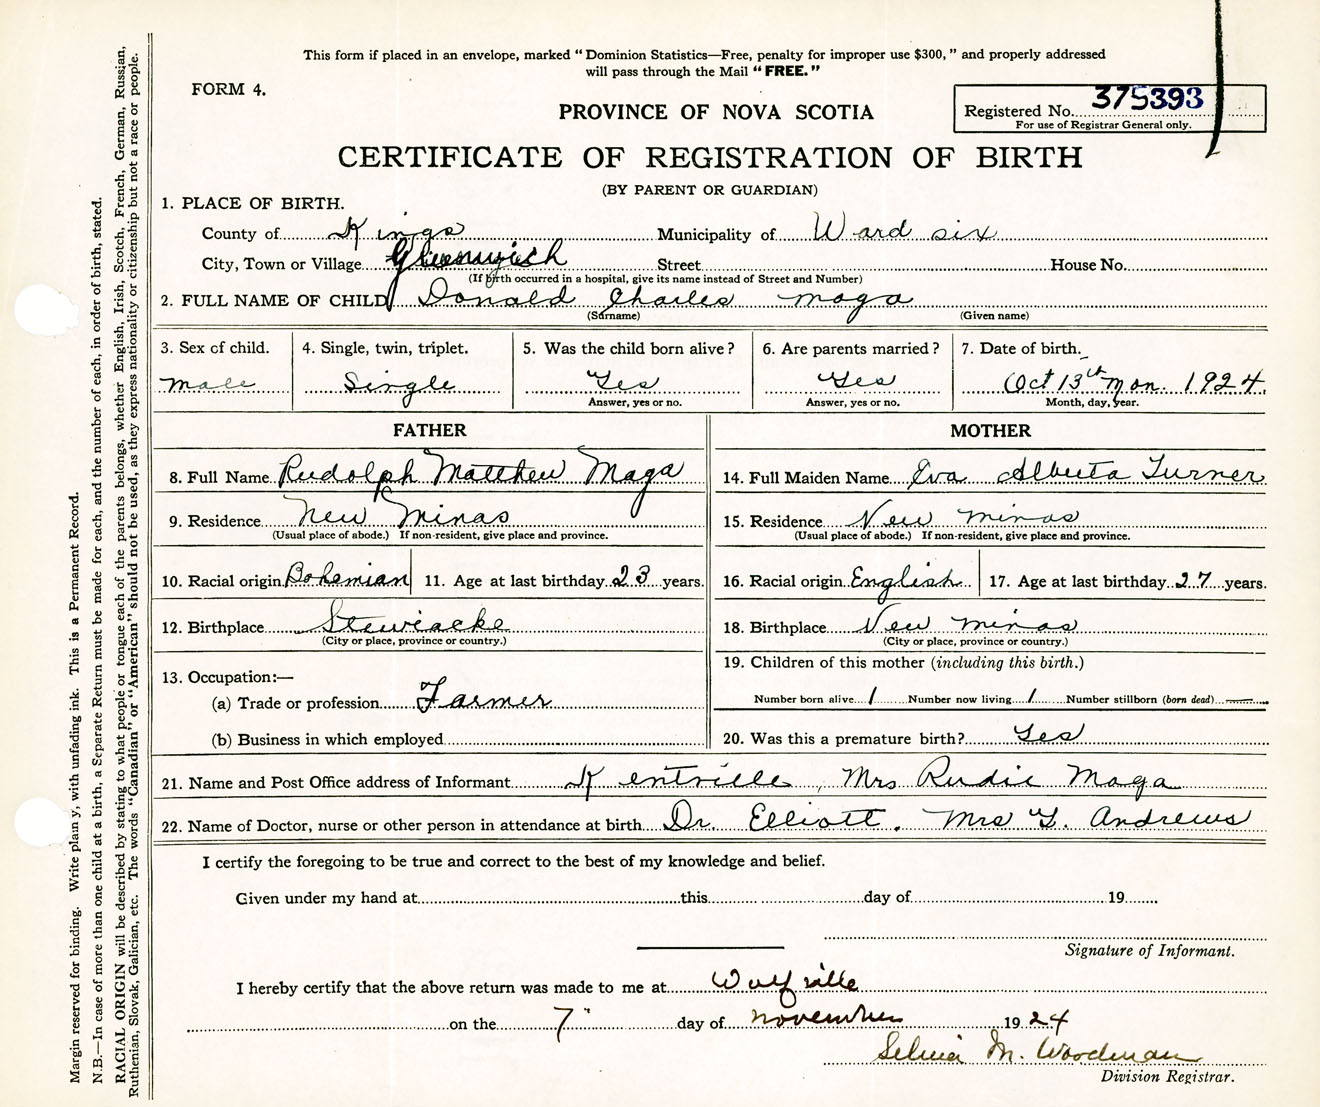 This form if placed in an envelope, marked "Dominion Statistics—Free, penalty for improper use $300," and properly addressed
will pass through the Mail "FREE."
FORM 4.
PROVINCE OF NOVA SCOTIA
Registered No. 375393
For use of Registrar General only.
CERTIFICATE OF REGISTRATION OF BIRTH
(BY PARENT OR GUARDIAN)
1. PLACE OF BIRTH.
County of Kings Municipality of Ward six
City, Town or Village Greenwich Street House No.
(If birth occurred in a hospital, give its name instead of Street and Number)
2. FULL NAME OF CHILD Donald Charles Maga
(Surname) (Given name)
3. Sex of child. 4. Single, twin, triplet. 5. Was the child born alive? 6. Are parents married? 7. Date of birth.
Male Single Yes Yes Oct 13th Mon. 1924
Answer, yes or no. Answer, yes or no. Month, day, year.
FATHER MOTHER
8. Full Name Rudolph Matthew Maga 14. Full Maiden Name Eva Alberta Turner
9. Residence New Minas 15. Residence New Minas
(Usual place of abode.) If non-resident, give place and province. (Usual place of abode.) If non-resident, give place and province.
10. Racial origin Bohemian 11. Age at last birthday 23 years. 16. Racial origin English 17. Age at last birthday 27 years.
12. Birthplace Stewiacke 18. Birthplace New Minas
(City or place, province or country.) (City or place, province or country.)
19. Children of this mother (including this birth.)
13. Occupation:—
(a) Trade or profession Farmer Number born alive 1 Number now living 1 Number stillborn (born dead) —
(b) Business in which employed 20. Was this a premature birth? Yes
21. Name and Post Office address of Informant Kentville, Mrs Rudie Maga
22. Name of Doctor, nurse or other person in attendance at birth Dr. Elliott. Mrs G. Andrews
I certify the foregoing to be true and correct to the best of my knowledge and belief.
Given under my hand at this day of 19
Signature of Informant.
I hereby certify that the above return was made to me at Wolfville
on the 7" day of November 1924
Selina M. Woodman
Division Registrar.
Margin reserved for binding. Write plain y, with unfading ink. This is a Permanent Record.
N.B.—In case of more than one child at a birth, a Separate Return must be made for each, and the number of each, in order of birth, stated.
RACIAL ORIGIN will be described by stating to what people or tongue each of the parents belongs, whether English, Irish, Scotch, French, German, Russian,
Ruthenian, Slovak, Galician, etc. The words "Canadian" or "American" should not be used, as they express nationality or citizenship but not a race or people.